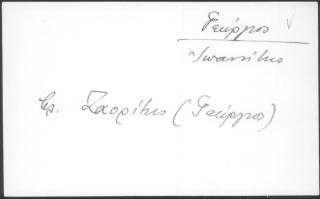 Γεώργιος
Ιωαννίτης
Cf. Ζαορίτης (Γεώργιος)